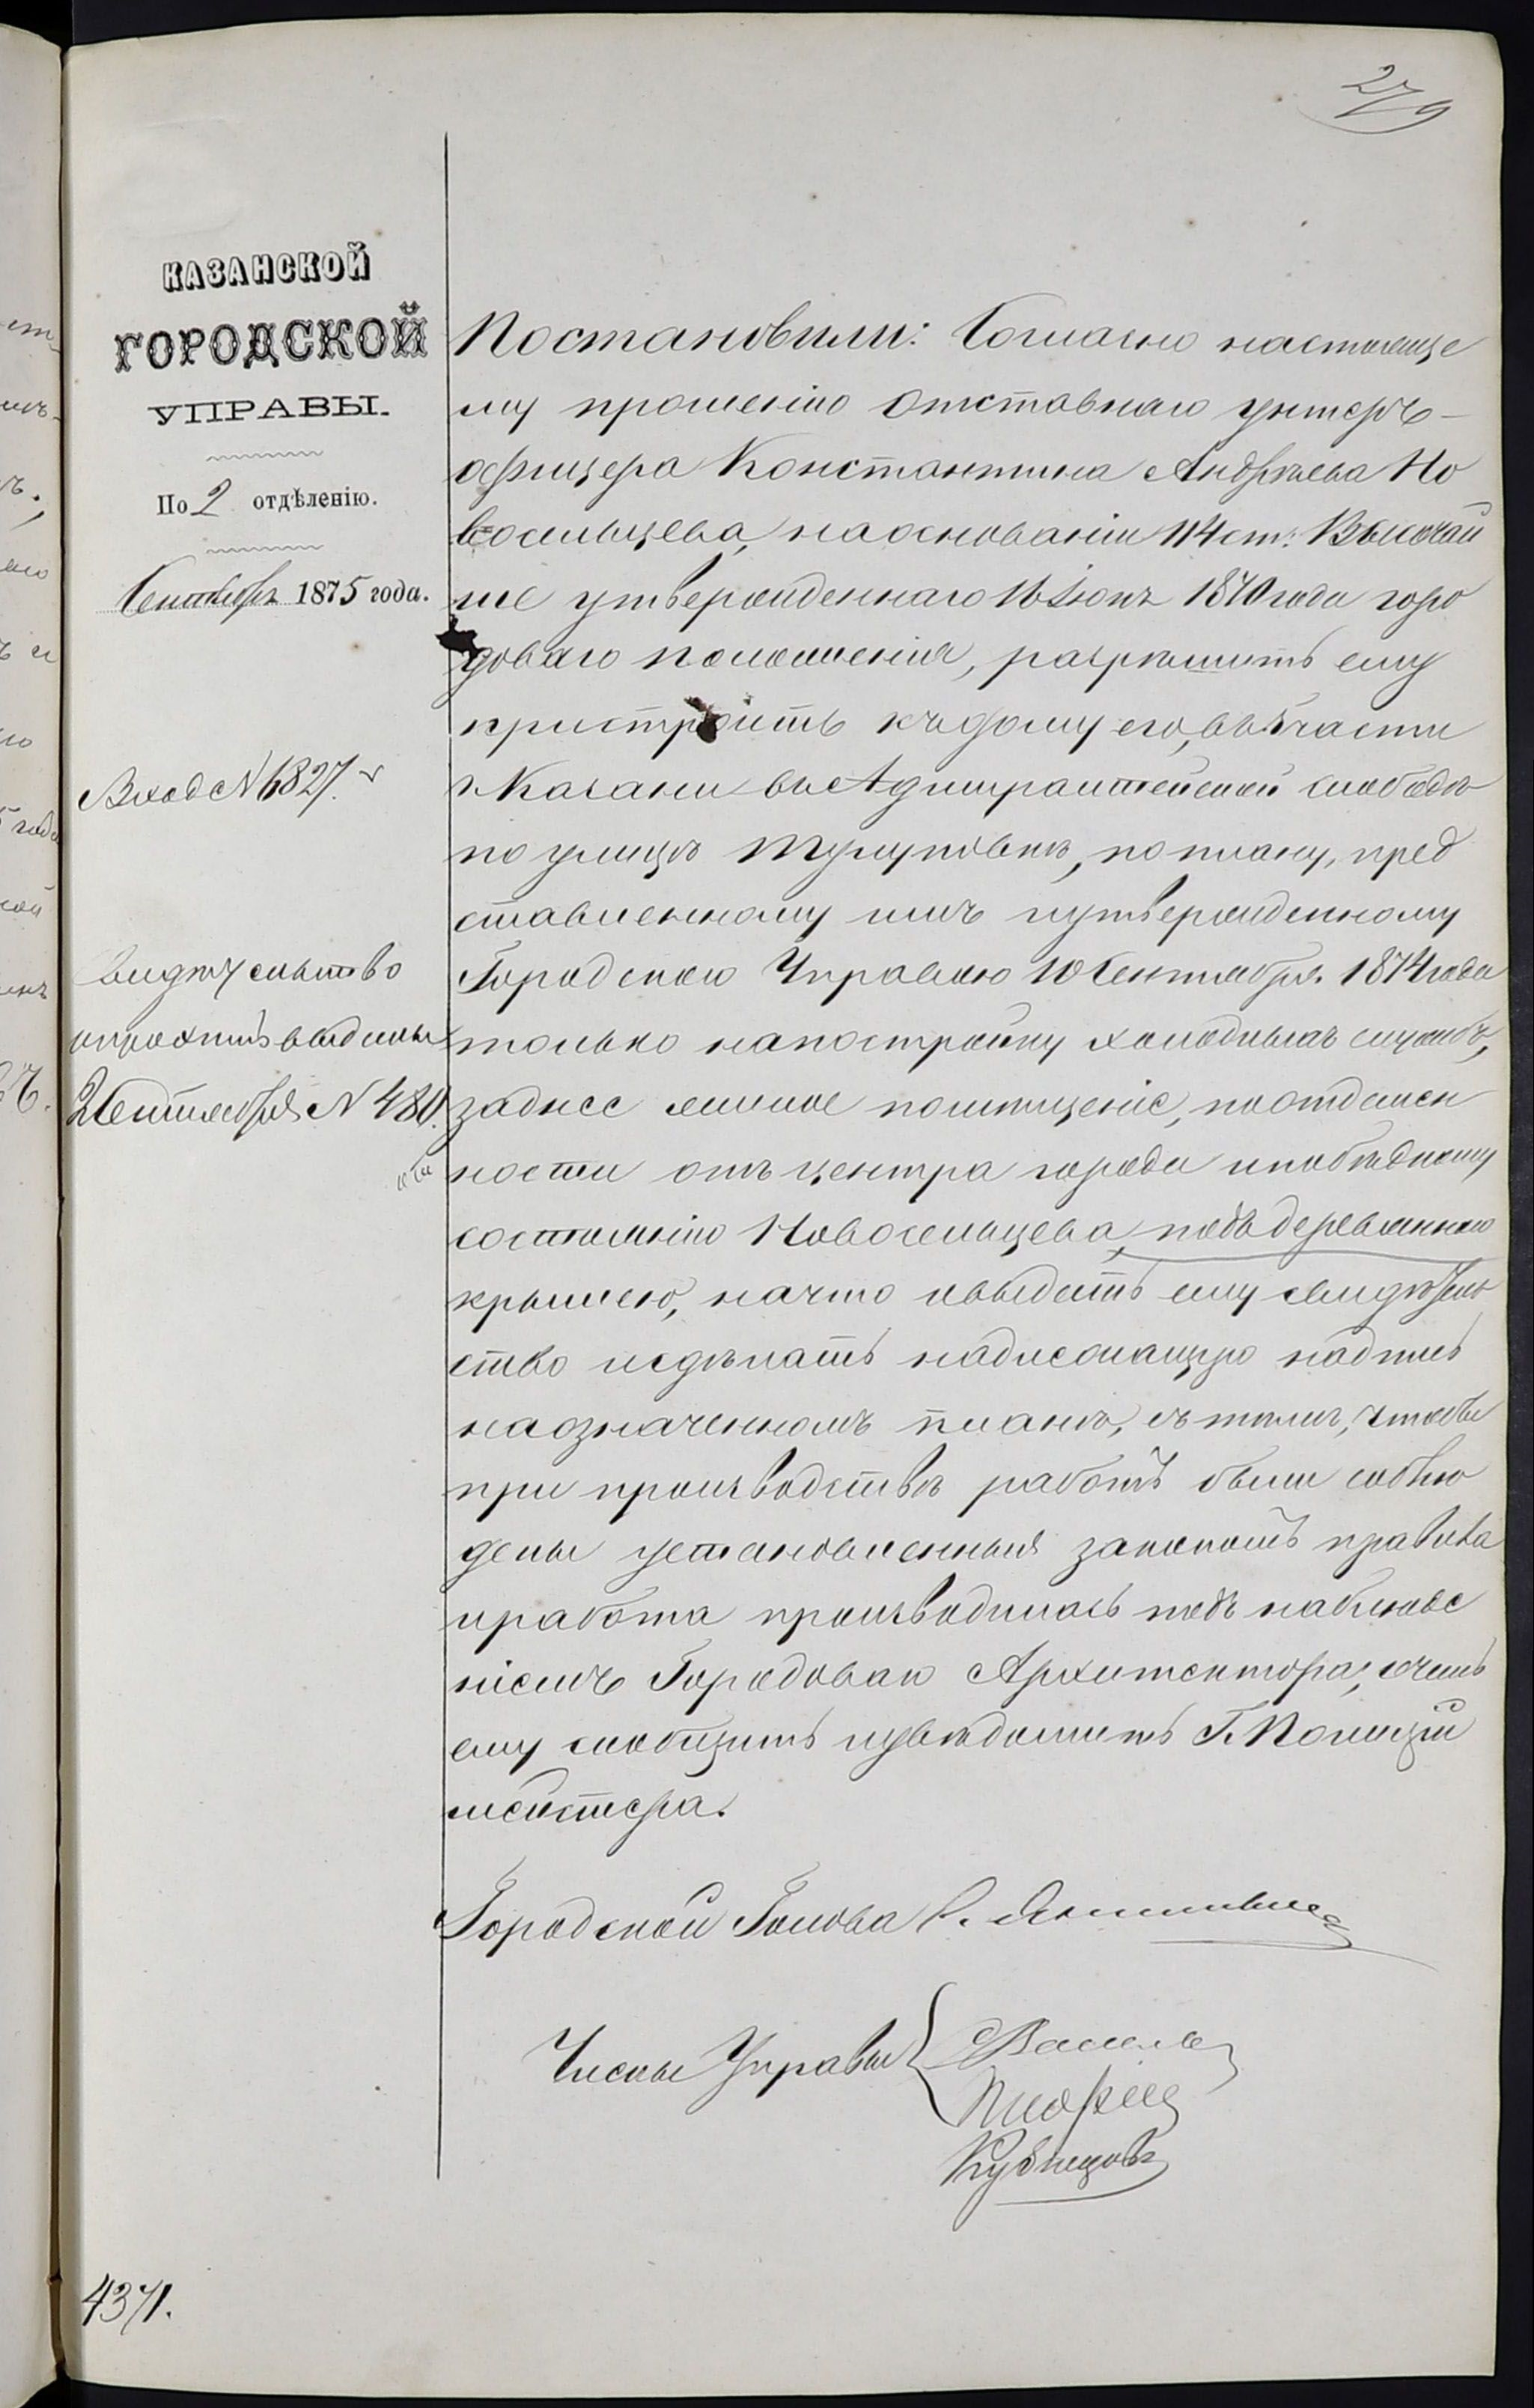 279
КАЗАНСКОЙ
ГОРОДСКОЙ
УПРАВЫ.
По 2 отдѣленію.
Сентябрь 1875 года.
Вход № 6827.
Свидѣтельство
и проэктъ выданы
2 Сентября № 480.
Постановили: Согласно настояще
му прошенію отставнаго унтеръ-
офицера Константина Андреева Но
восельцева, на основаніи 114 ст: Высочай
ше утвержденнаго 16 Іюнь 1870 года горо
доваго положенія, разрѣшить ему
пристроить къ дому его, въ 5 части
г. Казани въ Адмиралтейской слободѣ
по улицѣ Тулуповкѣ, по плану, пред
ставленному имъ и утвержденному
Городскою Управою 10 Сентября 1874 года
только на постройку холодныхъ службъ,
заднее жилое помѣщеніе, по отдален
ности отъ центра города и по бѣдному
состоянію Новосельцева, подъ деревянною
крышею, на что и выдать ему свидѣтель
ство и сдѣлать надлежащую надпись
на означенномъ планѣ, съ тѣмъ, чтобы
при производствѣ работъ были соблю
дены установленныя закономъ правила
и работа производилась подъ наблюде
ніемъ Городоваго Архитектора, о чемъ
ему сообщить и увѣдомить Г. Полицій
мейстера.
Городской Голова
Члены Управы
Кузнецовъ
4371.